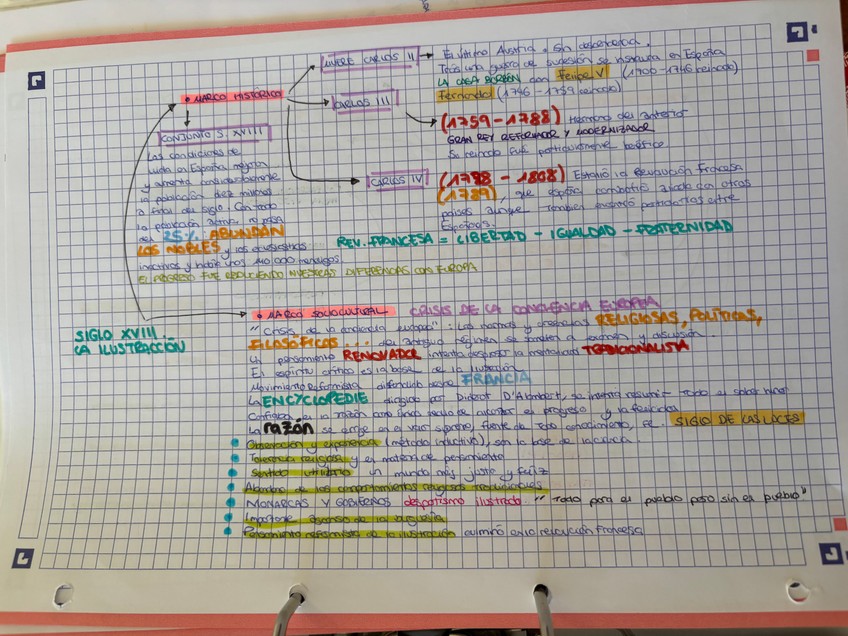 MUERE CARLOS II
Último Austria, sin descendencia.
Tras una guerra de sucesión se instaura en España
LA CASA BORBÓN con Felipe V (1700-1746 reinado)
Fernando (1746-1759 reinado)
• MARCO HISTÓRICO
CARLOS III
(1759-1788) Hermano del anterior
GRAN REY REFORMADOR Y MODERNIZADOR
Su reinado fue particularmente
CONJUNTO S. XVIII
Las condiciones de
vida en España mejoran
y aumenta considerablemente
la población diez millones
a final del siglo. Con todo
la población activa
del 25% ABUNDAN
LOS NOBLES y los eclesiásticos
inactivos y había unos 140.000 mendigos
EL PROGRESO FUE REDUCIENDO NUESTRAS DIFERENCIAS CON EUROPA
CARLOS IV
(1788-1808) Estalló la Revolución Francesa
(1789), que España combatió aliada con otros
países aunque también encontró partidarios entre
Españoles.
REV. FRANCESA = LIBERTAD - IGUALDAD - FRATERNIDAD
SIGLO XVIII
LA ILUSTRACCIÓN
• MARCO SOCIOCULTURAL CRISIS DE LA CONCIENCIA EUROPEA
"Crisis de la conciencia europea": Las normas y creencias RELIGIOSAS, POLÍTICAS,
FILOSÓFICAS... del antiguo régimen se someten a examen y discusión.
Un pensamiento RENOVADOR intenta desplazar la mentalidad TRADICIONALISTA
El espíritu crítico es la base de la Ilustración
Movimiento Reformista difundido desde FRANCIA
La ENCYCLOPEDIE dirigida por Diderot D'Alembert, se intenta resumir todo el saber
Confiaba en la razón como único medio de alcanzar el progreso y la felicidad
La razón se erige en el valor supremo, fuente de todo conocimiento, SIGLO DE LAS LUCES
• Observación y experiencia (método inductivo), son la base de la ciencia.
• Tolerancia religiosa y en materia de pensamiento
• Sentido utilitario un mundo más justo y feliz
• Abandono de los comportamientos religiosos tradicionales
• MONARCAS Y GOBIERNOS despotismo ilustrado "Todo para el pueblo pero sin el pueblo"
• Importante ascenso de la burguesía
• Pensamiento reformista de la ilustración culminó en la revolución francesa